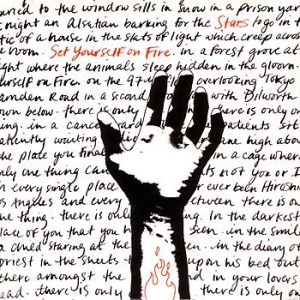 ured to the window sills in snow in a prison yar
night an alsatian barking for the Stars logo in t
tic of a house in the slats of light which creep across
e room. Set Yourself on Fire. in a forest grove at
ght where the animals sleep hidden in the gloom.
urself on Fire. on the 97th overlooking Tokyo
amden Road in a second with Dilworth
own below. there is only there is only o
ing. in a cancer patients sit
atiently waiting me high above
he place you final in a cage where
nly one thing can ts not you or I
n every single place ever been throw
os Angeles and every between there is on
ne thing. there is only one thing. In the darkest
lace of you that you h een. in the smile
a child staring at the in the diary o
priest in the sheets upon his bed but
there amongst the nd in your lovers
ead. there is only there is only on